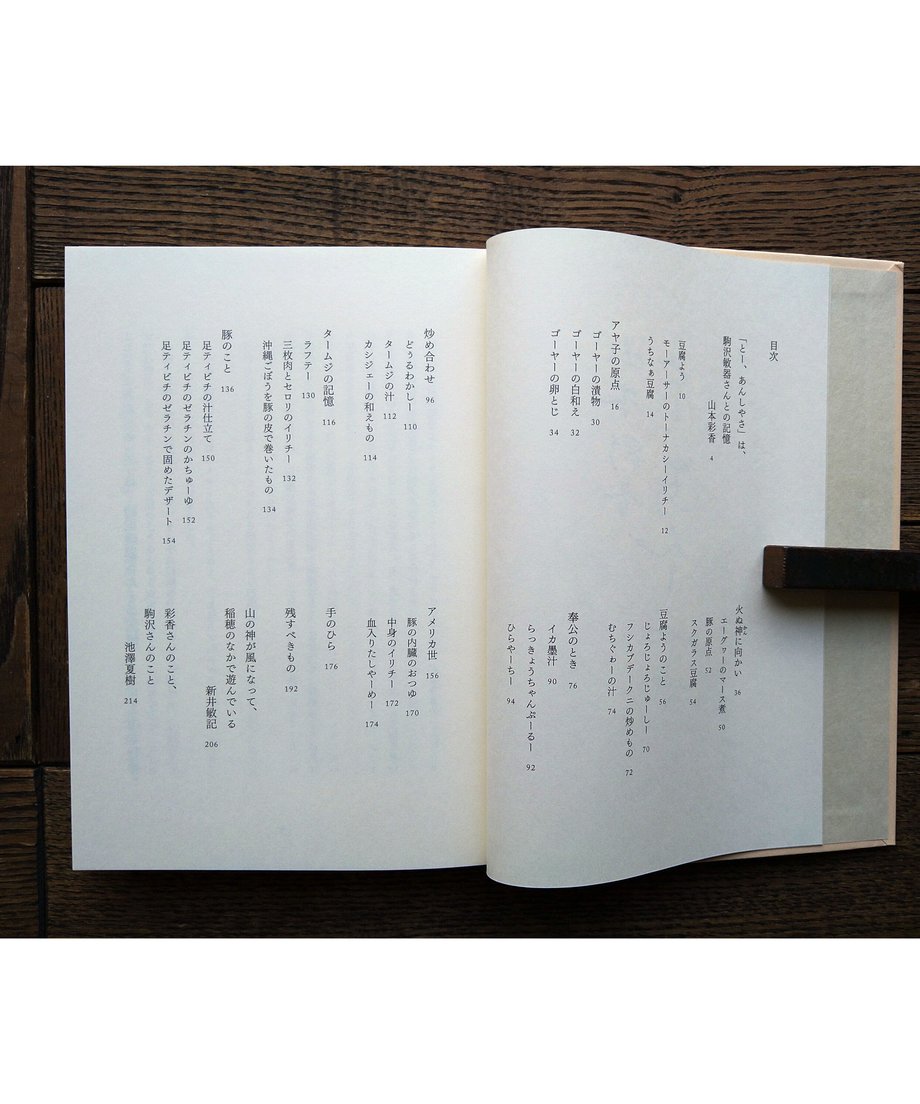 目次
「とー、あんしやさ」は、
駒沢敏器さんとの記憶
山本彩香 4
豆腐よう 10
モーアーサーのトーナカシーイリチー 12
うちなぁ豆腐 14
アヤ子の原点 16
ゴーヤーの漬物 30
ゴーヤーの白和え 32
ゴーヤーの卵とじ 34
火ぬ神に向かい 36
かん
エーグヮーのマース煮 50
豚の原点 52
スクガラス豆腐 54
豆腐ようのこと 56
じょろじょろじゅーしー 70
フシカブデークニの炒めもの 72
むちぐゎーの汁 74
奉公のとき 76
イカ墨汁 90
らっきょうちゃんぷーるー 92
ひらやーちー 94
炒め合わせ 96
どぅるわかしー 110
タームジの汁 112
カシジェーの和えもの 114
タームジの記憶 116
ラフテー 130
三枚肉とセロリのイリチー 132
沖縄ごぼうを豚の皮で巻いたもの 134
豚のこと 136
足ティビチの汁仕立て 150
足ティビチのゼラチンのかちゅーゆ 152
足ティビチのゼラチンで固めたデザート 154
アメリカ世 156
豚の内臓のおつゆ 170
中身のイリチー 172
血入りたしやーめー 174
手のひら 176
残すべきもの 192
山の神が風になって、
稲穂のなかで遊んでいる
新井敏記 206
彩香さんのこと、
駒沢さんのこと
池澤夏樹 214